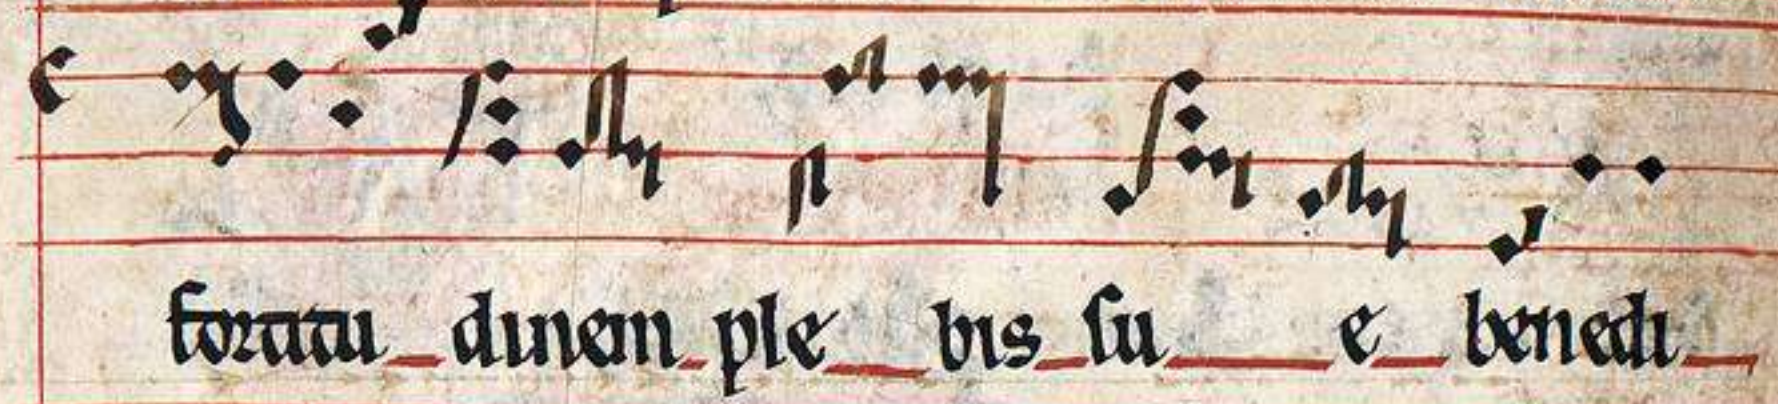 fortitu dinem ple bis su e benedi